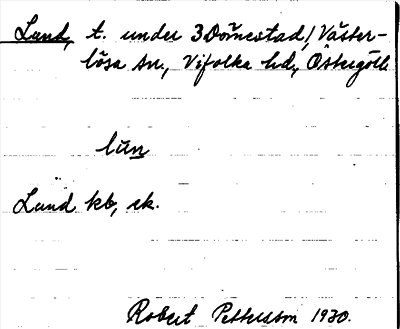 Lund, t. under 3 Dörnestad, Väster-
lösa sn., Vifolka hd, Östergötl.
lun
Lund kb, ek.
Robert Pettersson 1930.